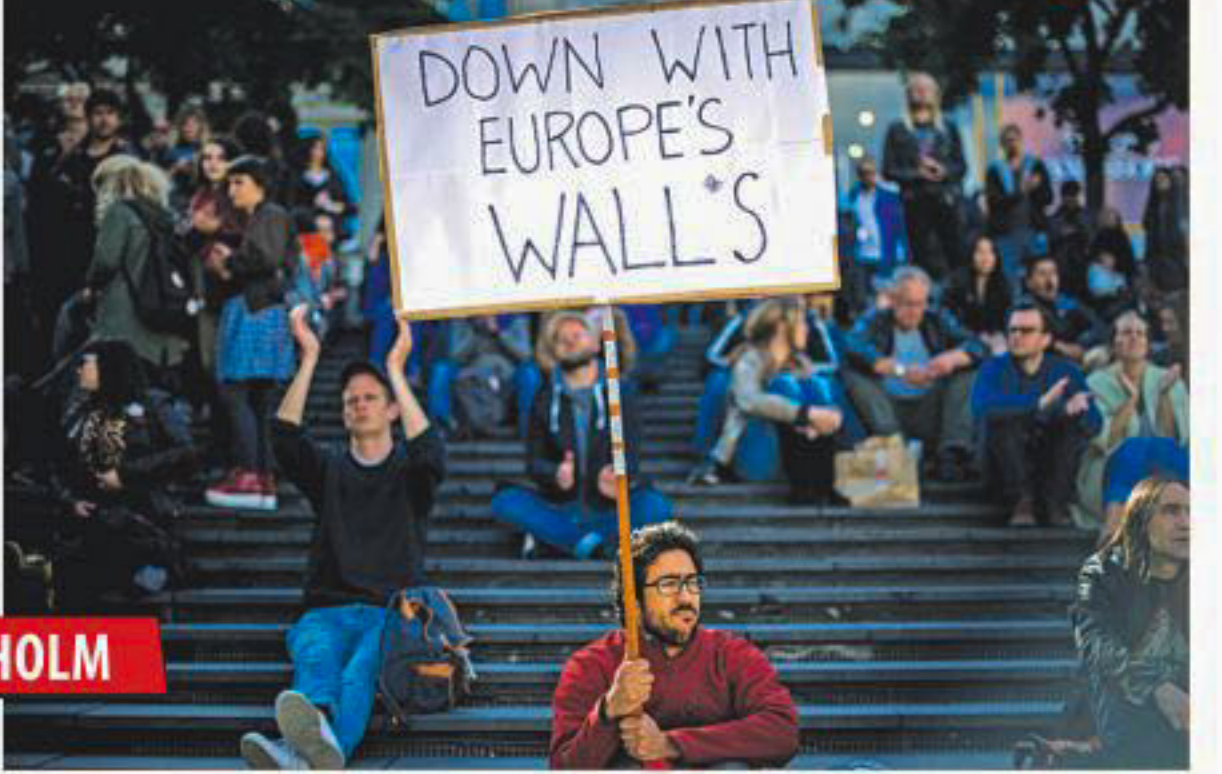 DOWN WITH
EUROPE'S
WALL'S
HOLM